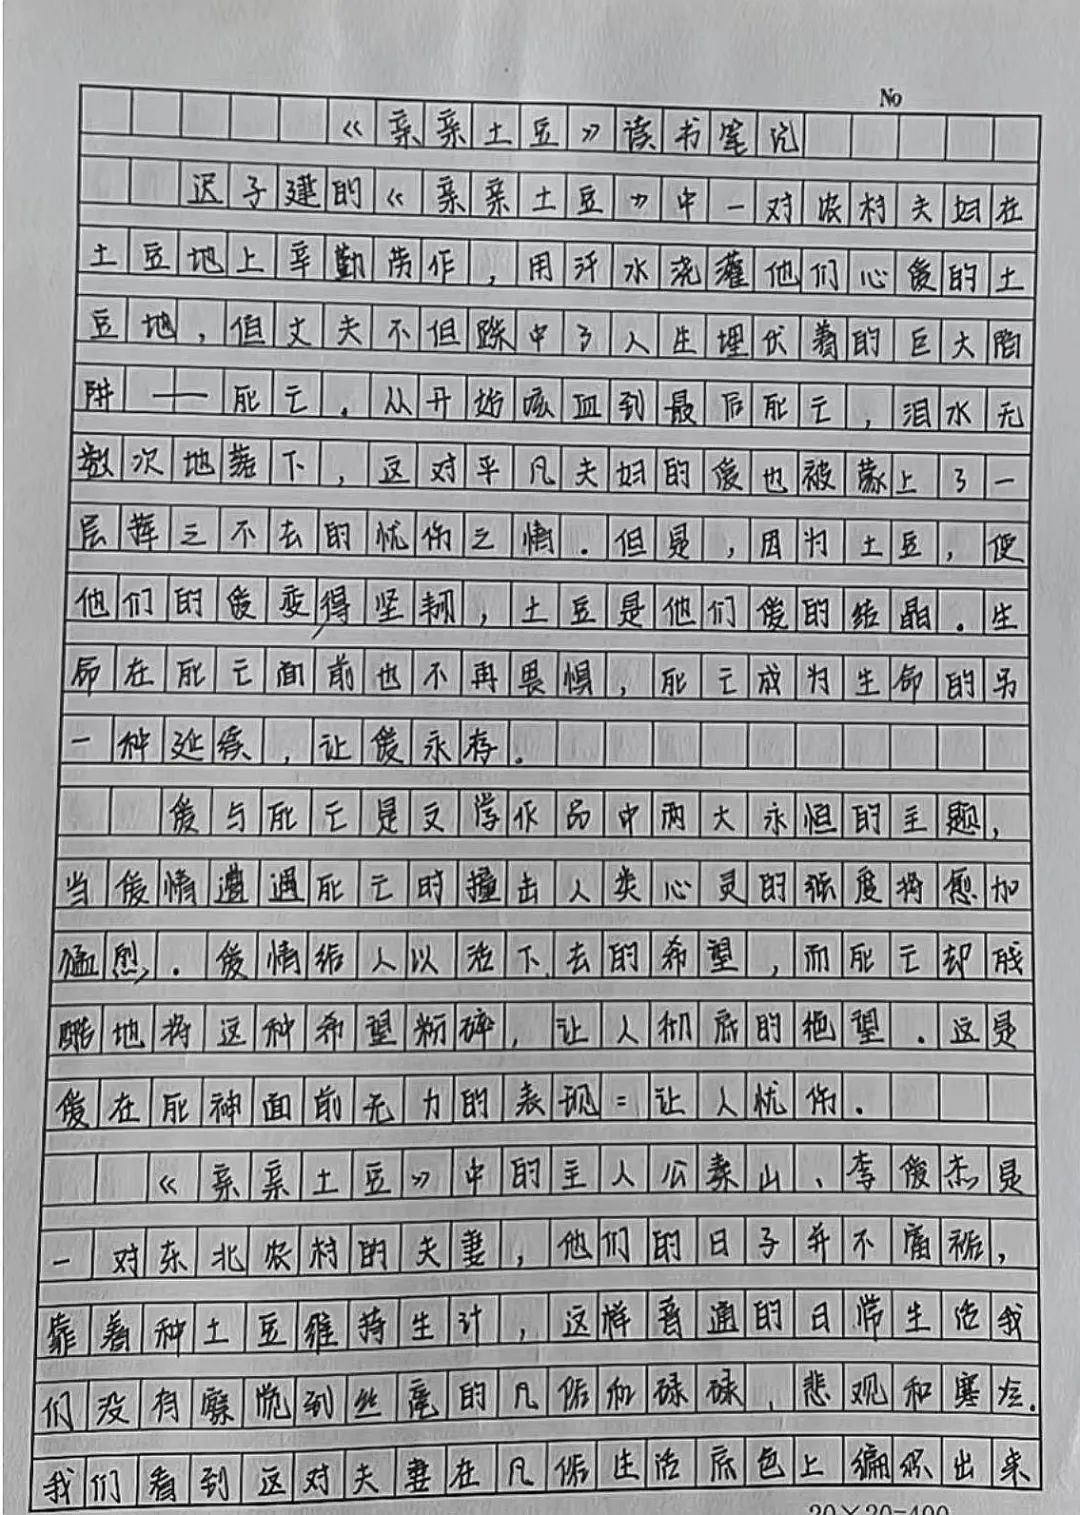 No
《亲亲土豆》读书笔记
迟子建的《亲亲土豆》中一对农村夫妇在
土豆地上辛勤劳作，用汗水浇灌他们心爱的土
豆地，但丈夫不但跌中了人生埋伏着的巨大陷
阱——死亡。从开始咳血到最后死亡，泪水无
数次地落下，这对平凡夫妇的爱也被蒙上了一
层挥之不去的忧伤之情。但是，因为土豆，使
他们的爱变得坚韧，土豆是他们爱的结晶。生
命在死亡面前也不再畏惧，死亡成为生命的另
一种延续，让爱永存。
爱与死亡是文学作品中两大永恒的主题，
当爱情遭遇死亡时撞击人类心灵的强度将愈加
猛烈。爱情给人以活下去的希望，而死亡却残
酷地将这种希望粉碎，让人彻底的绝望。这是
爱在死神面前无力的表现=让人忧伤。
《亲亲土豆》中的主人公秦山、李爱杰是
一对东北农村的夫妻，他们的日子并不富裕，
靠着种土豆维持生计，这样普通的日常生活我
们没有察觉到丝毫的凡俗和碌碌，悲观和寒怆.
我们看到这对夫妻在凡俗生活底色上编织出来
20×20=400